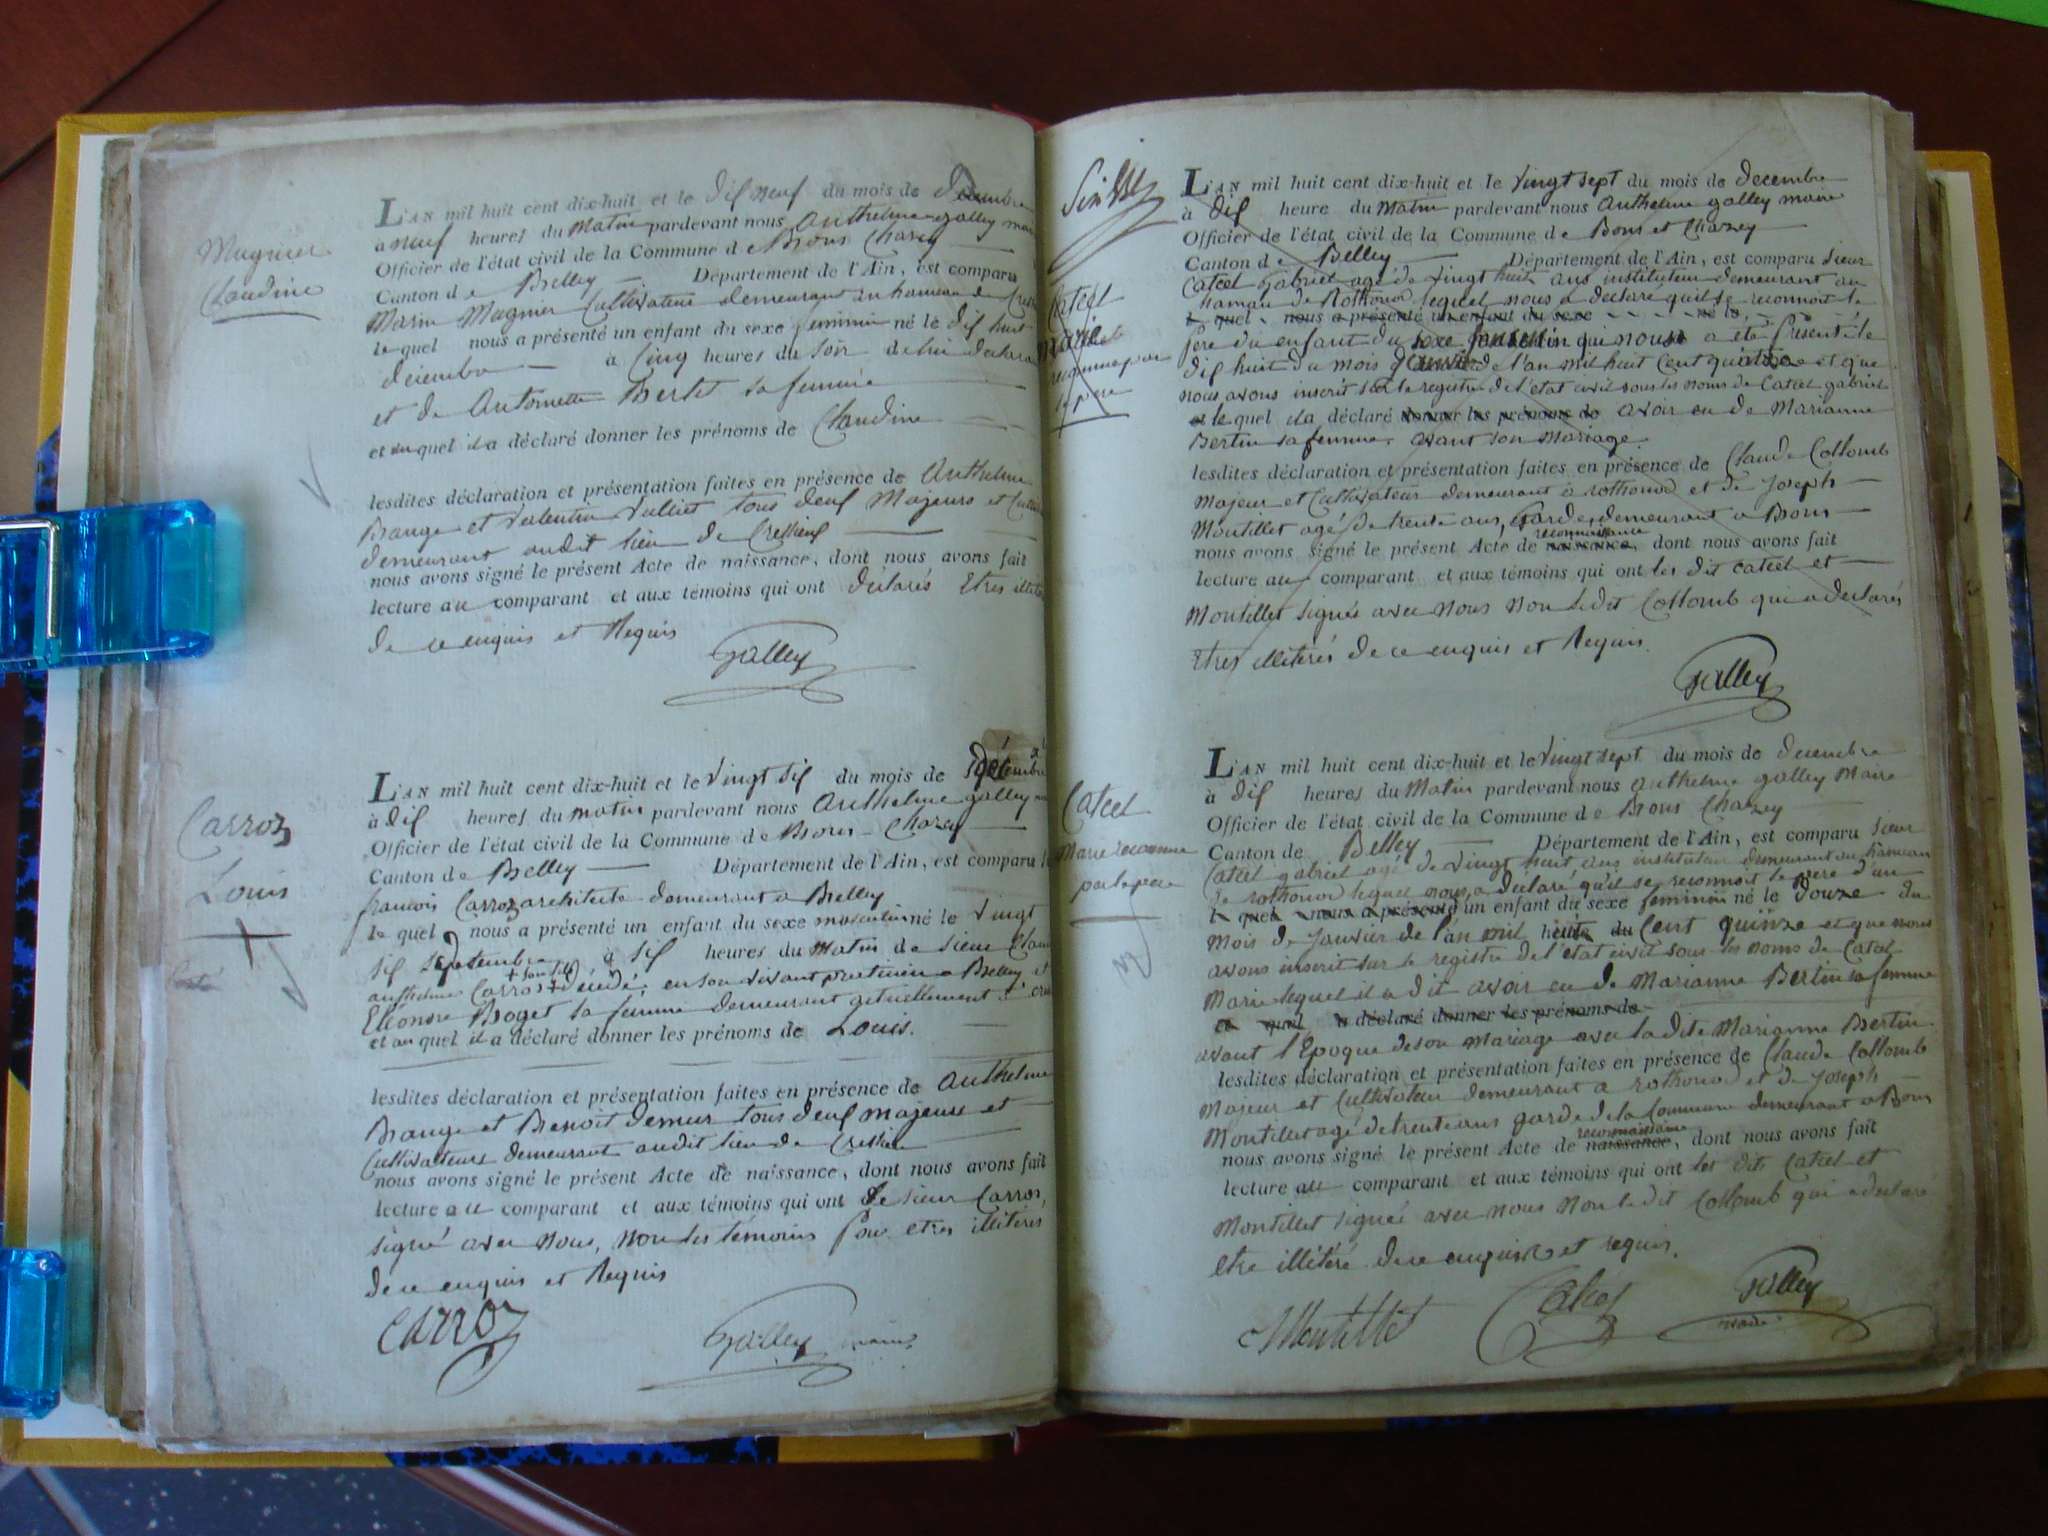 Magnier
Claudine
L'AN mil huit cent dix-huit et le dix neuf du mois de decembre
à neuf heures du Matin pardevant nous Anthelme galley
Officier de l'état civil de la Commune de Bons Chazey
Canton de Belley Département de l'Ain, est comparu
Marin Magnier Cultivateur demeurant au hameau de
le quel nous a présenté un enfant du sexe feminin né le dix huit
decembre à Cinq heures du Soir de lui declarant
et de Antoinette Bertet sa femme
et auquel il a déclaré donner les prénoms de Claudine
lesdites déclaration et présentation faites en présence de Anthelme
Brange et Valentin Vulliet tous deux Majeurs et
demeurant audit lieu de Cressieux
nous avons signé le présent Acte de naissance, dont nous avons fait
lecture au comparant et aux témoins qui ont déclarés Etres
de ce enquis et Requis
Galley
Carroz
Louis
L'AN mil huit cent dix-huit et le Vingt six du mois de décembre
à dix heures du matin pardevant nous Anthelme galley
Officier de l'état civil de la Commune de Bons - Chazey
Canton de Belley Département de l'Ain, est comparu
francois Carroz architecte demeurant a Belley
le quel nous a présenté un enfant du sexe masculin né le Vingt
six septembre à six heures du Matin de sieur
anthelme Carroz décédé, en son vivant praticien a Belley et
Eléonore Roget sa femme demeurant actuellement à
et auquel il a déclaré donner les prénoms de Louis.
lesdites déclaration et présentation faites en présence de Anthelme
Brange et Benoit Demeur tous deux majeurs et
Cultivateurs demeurant audit lieu de Cressieu
nous avons signé le présent Acte de naissance, dont nous avons fait
lecture au comparant et aux témoins qui ont le sieur Carroz,
signé avec nous, non les témoins pour etres illitérés
de ce enquis et Requis
Carroz
Galley maire
Catcel
reconnue par
le père
L'AN mil huit cent dix-huit et le Vingt sept du mois de decembre
à dix heure du Matin pardevant nous Anthelme galley maire
Officier de l'état civil de la Commune de Bons et Chazey
Canton de Belley Département de l'Ain, est comparu sieur
Catcel gabriel agé de vingt huit ans instituteur demeurant au
hamau de Rothonod lequel nous a declaré qu'il se reconnoit le
le quel nous a présenté un enfant du sexe né le
pere du enfant du sexe qui nous a été présenté le
dix huit du mois de l'an mil huit cent quinze et que
nous avons inscrit sur le registre de l'état civil sous les noms de Catcel gabriel
et lequel il a déclaré donner les prénoms de avoir eu de Marianne
Bertin sa femme avant son Mariage.
lesdites déclaration et présentation faites en présence de Claude Collomb
Majeur et Cultivateur demeurant à rothonod et de Joseph
Montillet agé de trente ans, garde, demeurant a Bons
reconnaissance
nous avons signé le présent Acte de naissance, dont nous avons fait
lecture au comparant et aux témoins qui ont les dit Catcel et
Montillet signés avec nous non ledit Collomb qui a declarés
Etres illiterés de ce enquis et Requis.
Galley
Catcel
Marie reconnue
par le père
L'AN mil huit cent dix-huit et le Vingt sept du mois de decembre
à dix heures du Matin pardevant nous Anthelme galley Maire
Officier de l'état civil de la Commune de Bons Chazey
Canton de Belley Département de l'Ain, est comparu sieur
Catcel gabriel agé de vingt huit ans instituteur demeurant au hameau
de rothonod lequel nous a déclaré qu'il se reconnoit le père d'un
le quel nous a présenté un enfant du sexe feminin né le douze du
mois de Janvier de l'an mil huit Cent quinze et que nous
avons inscrit sur le registre de l'état civil sous les noms de Catcel
Marie lequel il a dit avoir eu de Marianne Bertin sa femme
et quel a déclaré donner les prénoms de
avant l'Epoque de son Mariage avec la dite Marianne Bertin
lesdites déclaration et présentation faites en présence de Claude Collomb
Majeur et Cultivateur demeurant a rothonod et de Joseph
Montillet agé de trente ans garde de la Commune demeurant a Bons
reconnaissance
nous avons signé le présent Acte de naissance, dont nous avons fait
lecture au comparant et aux témoins qui ont les dits Catcel et
Montillet signés avec nous non ledit Collomb qui a declaré
etre illitéré de ce enquis et requis.
Montillet
Catcel
Galley
maire